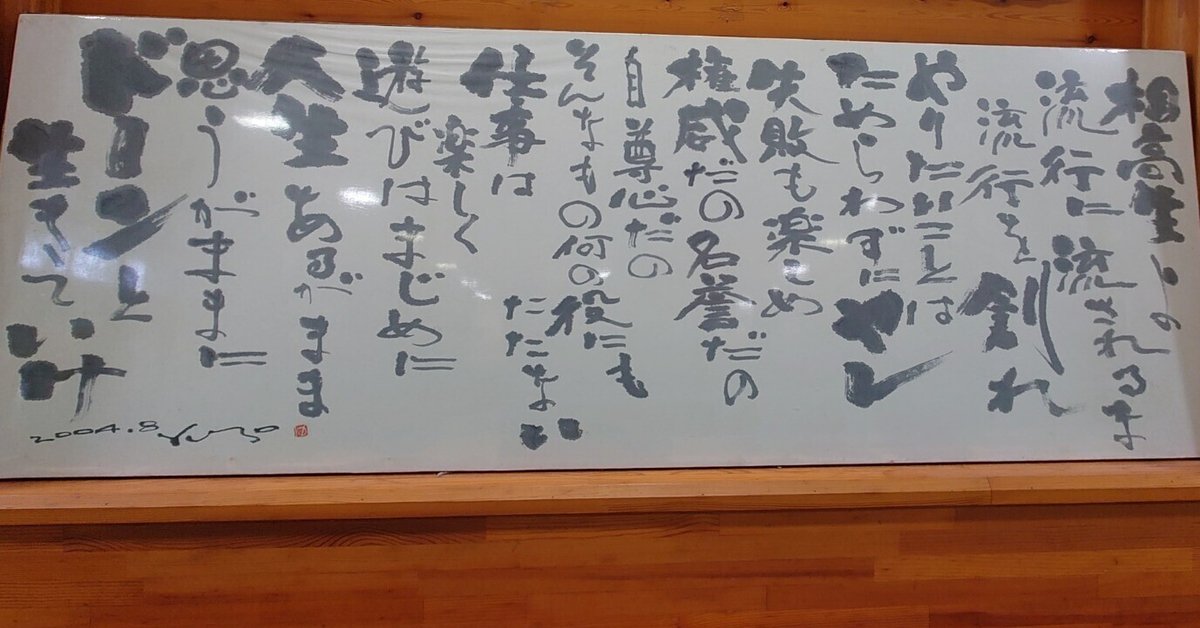 流行に流されるな
流行を創れ
やりたいことは
ためらわずにヤレ
失敗も楽しめ
権威だの名誉だの
自尊心だの
そんなもの何の役にも
たたない
仕事は
楽しく
遊びはまじめに
人生あるがまま
思うがままに
ドーンと
生きていけ
2004.8